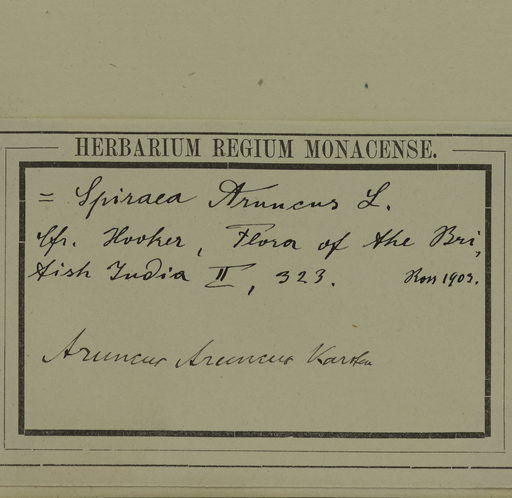 HERBARIUM REGIUM MONACENSE.
= Spiraea Aruncus L.
Cfr. Hooker, Flora of the Bri,
tish India II, 323. Ross 1903.
Aruncus Aruncus Karsten